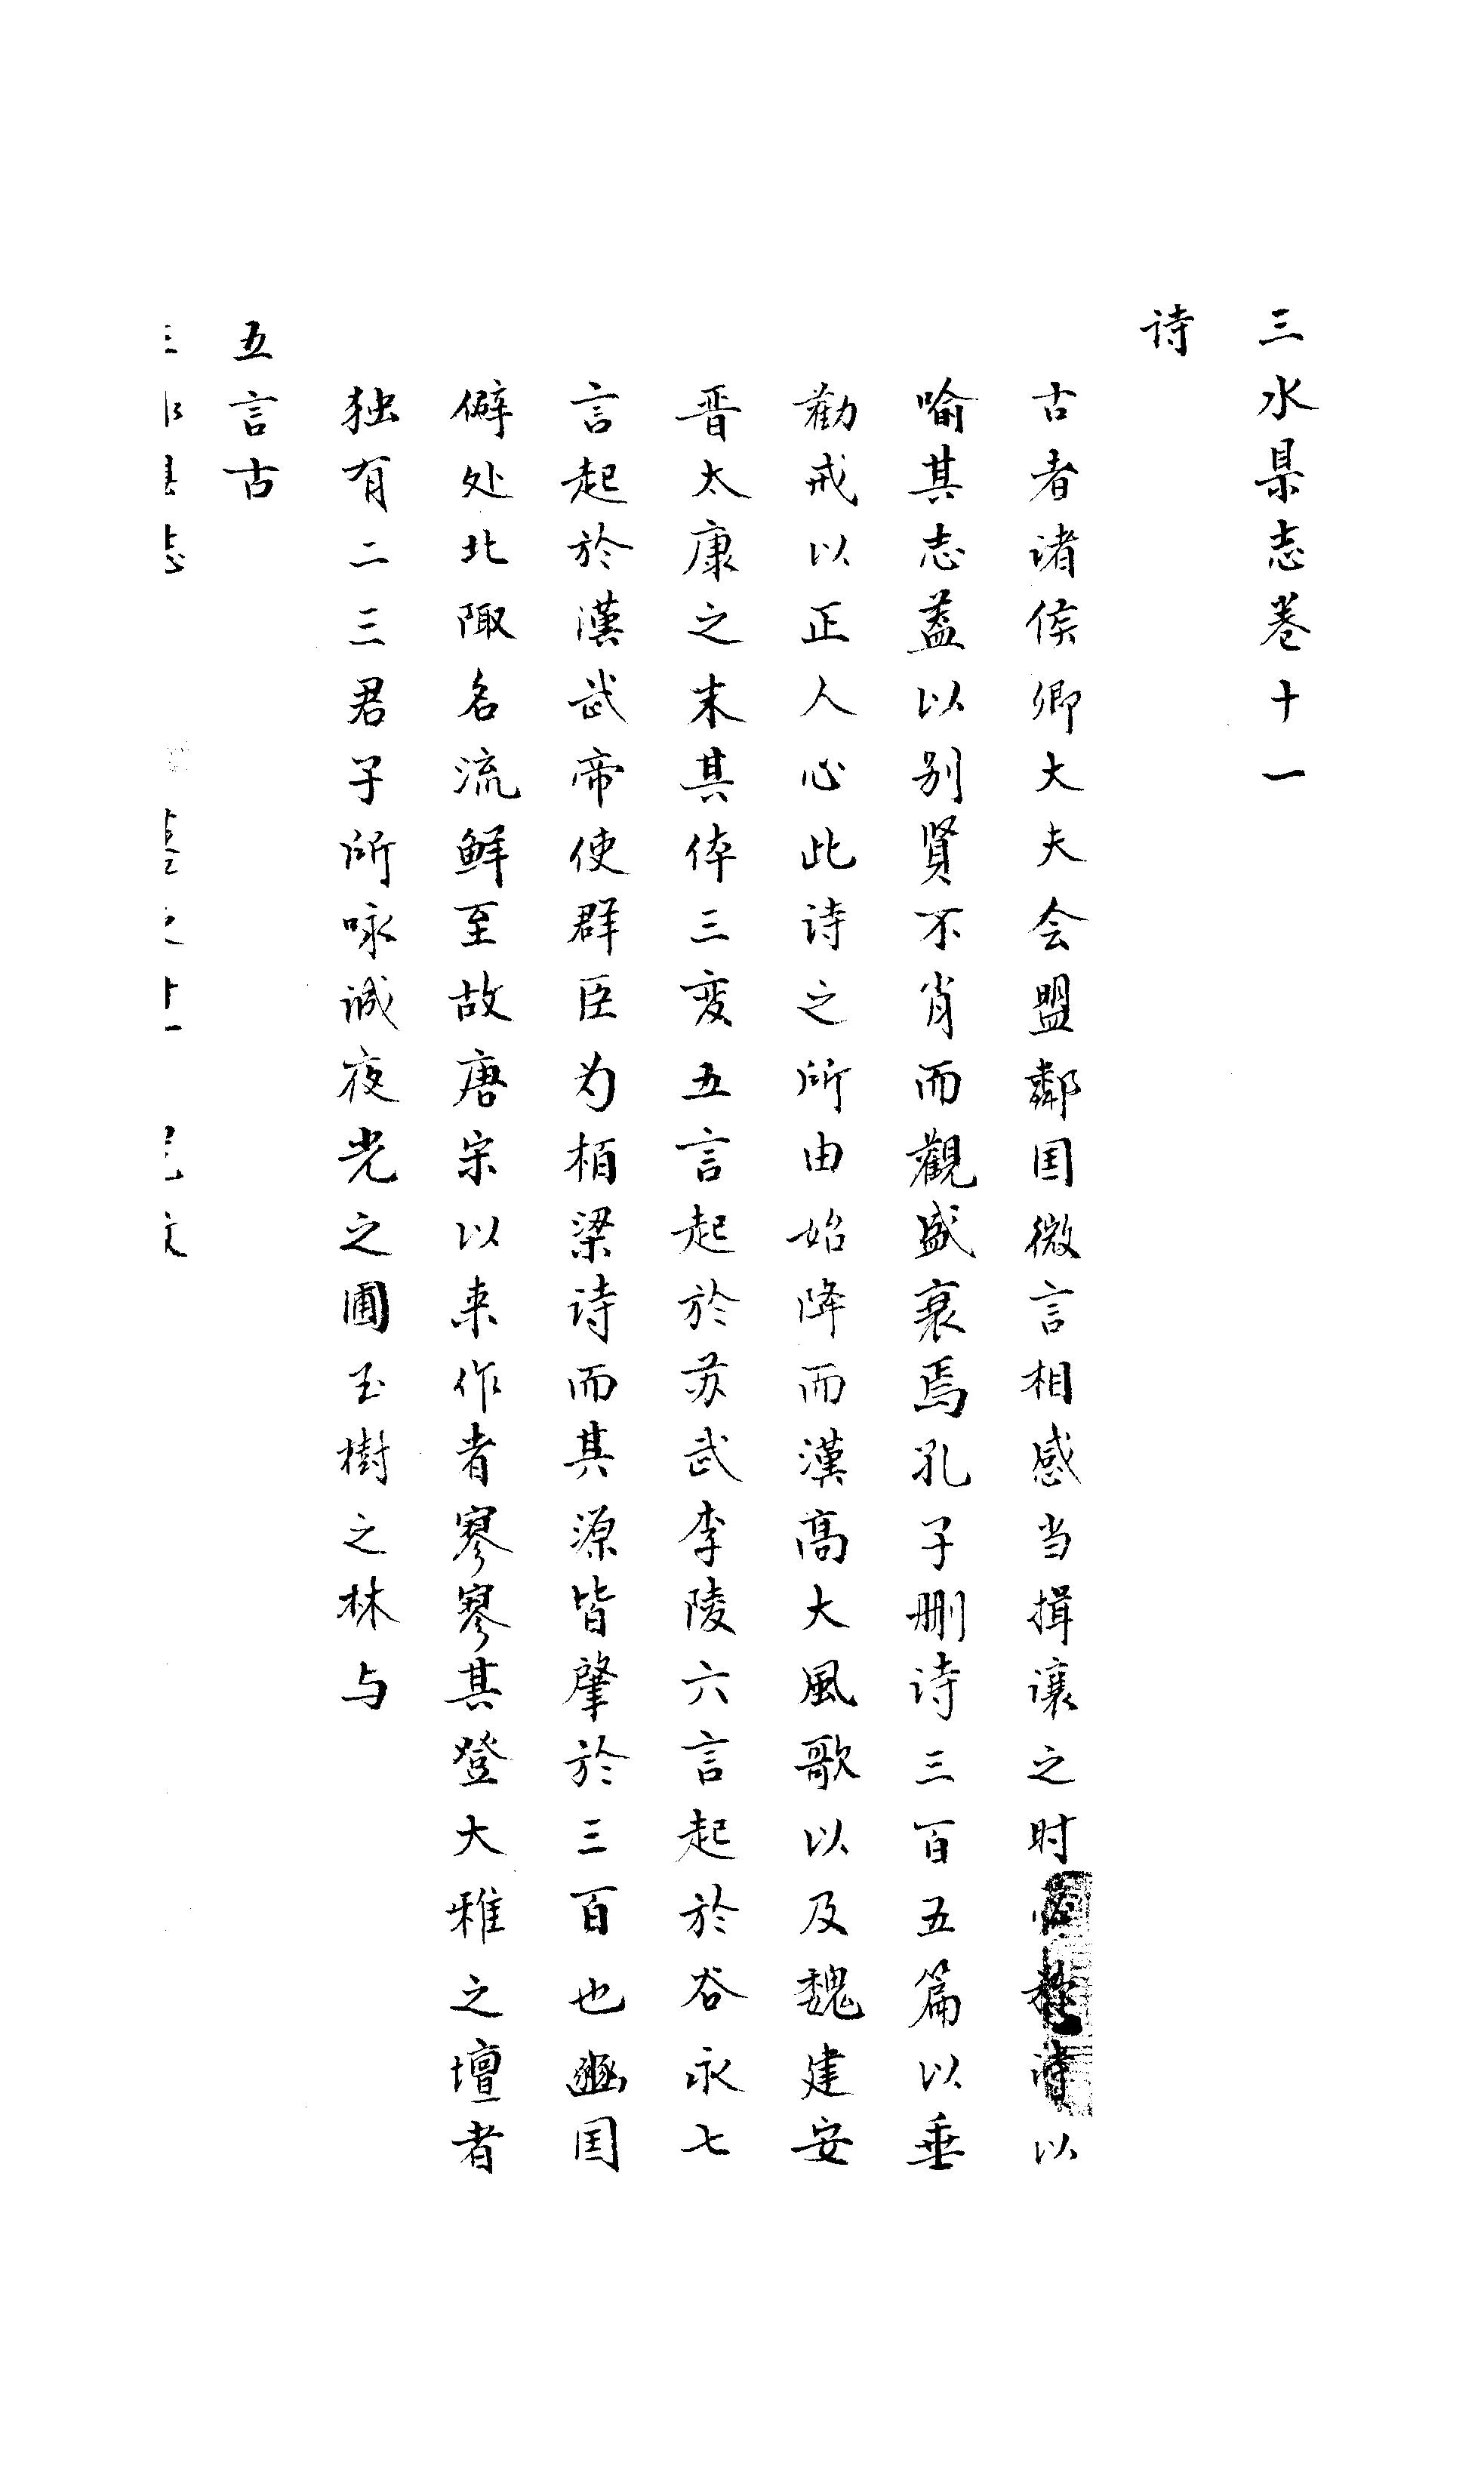 三水県志卷十一
诗
古者诸侯卿大夫会盟鄰国微言相感当揖讓之时必称诗以
喻其志蓋以别賢不肖而觀盛衰焉孔子删诗三百五篇以垂
勸戒以正人心此诗之所由始降而漢高大風歌以及魏建安
晋太康之末其体三变五言起於苏武李陵六言起於谷永七
言起於漢武帝使群臣为栢梁诗而其源皆肇於三百也豳国
僻处北陬名流鲜至故唐宋以来作者寥寥其登大雅之壇者
独有二三君子所咏诚夜光之圃玉樹之林与
五言古